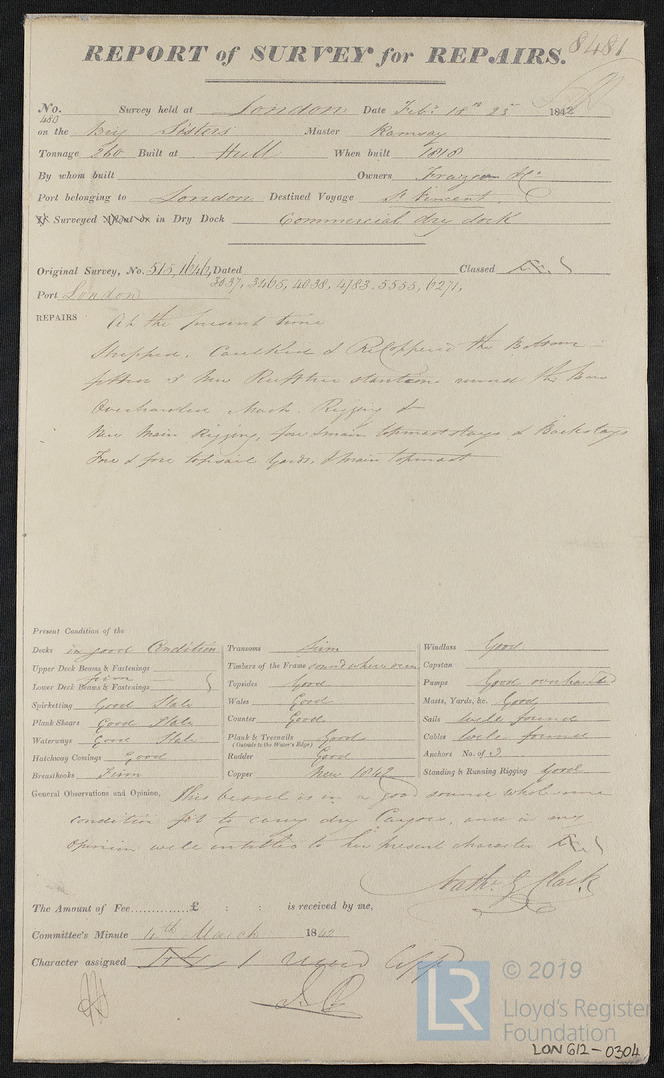 8481
REPORT of SURVEY for REPAIRS.
No. 480 Survey held at London Date Feb. 18th 25 1842
on the Brig Sisters Master Ramsay
Tonnage 260 Built at Hull When built 1818
By whom built Owners Frazer &c
Port belonging to London Destined Voyage St. Vincent
Surveyed in Dry Dock Commercial dry dock
Original Survey, No. 515, 1646, Dated Classed Æ 1
3037, 3465, 4038, 4783. 5555, 6271,
Port London
REPAIRS At the present time
Stripped, Caulked & ReCoppered the Bottom
new stantions round the Bow
Overhauled Mast. Rigging &
New Main Rigging, fore & main topmast stays & Backstays
Fore & fore topsail Yards, & main topmast
Present Condition of the
Decks in good Condition
Upper Deck Beams & Fastenings
Lower Deck Beams & Fastenings firm
Spirketting Good State
Plank Shears Good State
Waterways Good State
Hatchway Comings Good
Breasthooks Firm
Transoms Firm
Timbers of the Frame sound where seen
Topsides Good
Wales Good
Counter Good
Plank & Treenails Good
(Outside to the Water's Edge)
Rudder Good
Copper New 1842
Windlass Good
Capstan
Pumps Good overhauled
Masts, Yards, &c. Good
Sails Well found
Cables Well found
Anchors No. of 3
Standing & Running Rigging Good
General Observations and Opinion, This vessel is in a good sound wholesome
condition fit to carry dry Cargoes, and in my
Opinion well entitled to her present character Æ 1
Nathl. G Clark
The Amount of Fee..............£ : : is received by me,
Committee's Minute 4th March 1842
Character assigned Æ 1
© 2019
LR Lloyd's Register
Foundation
LON 612-0304